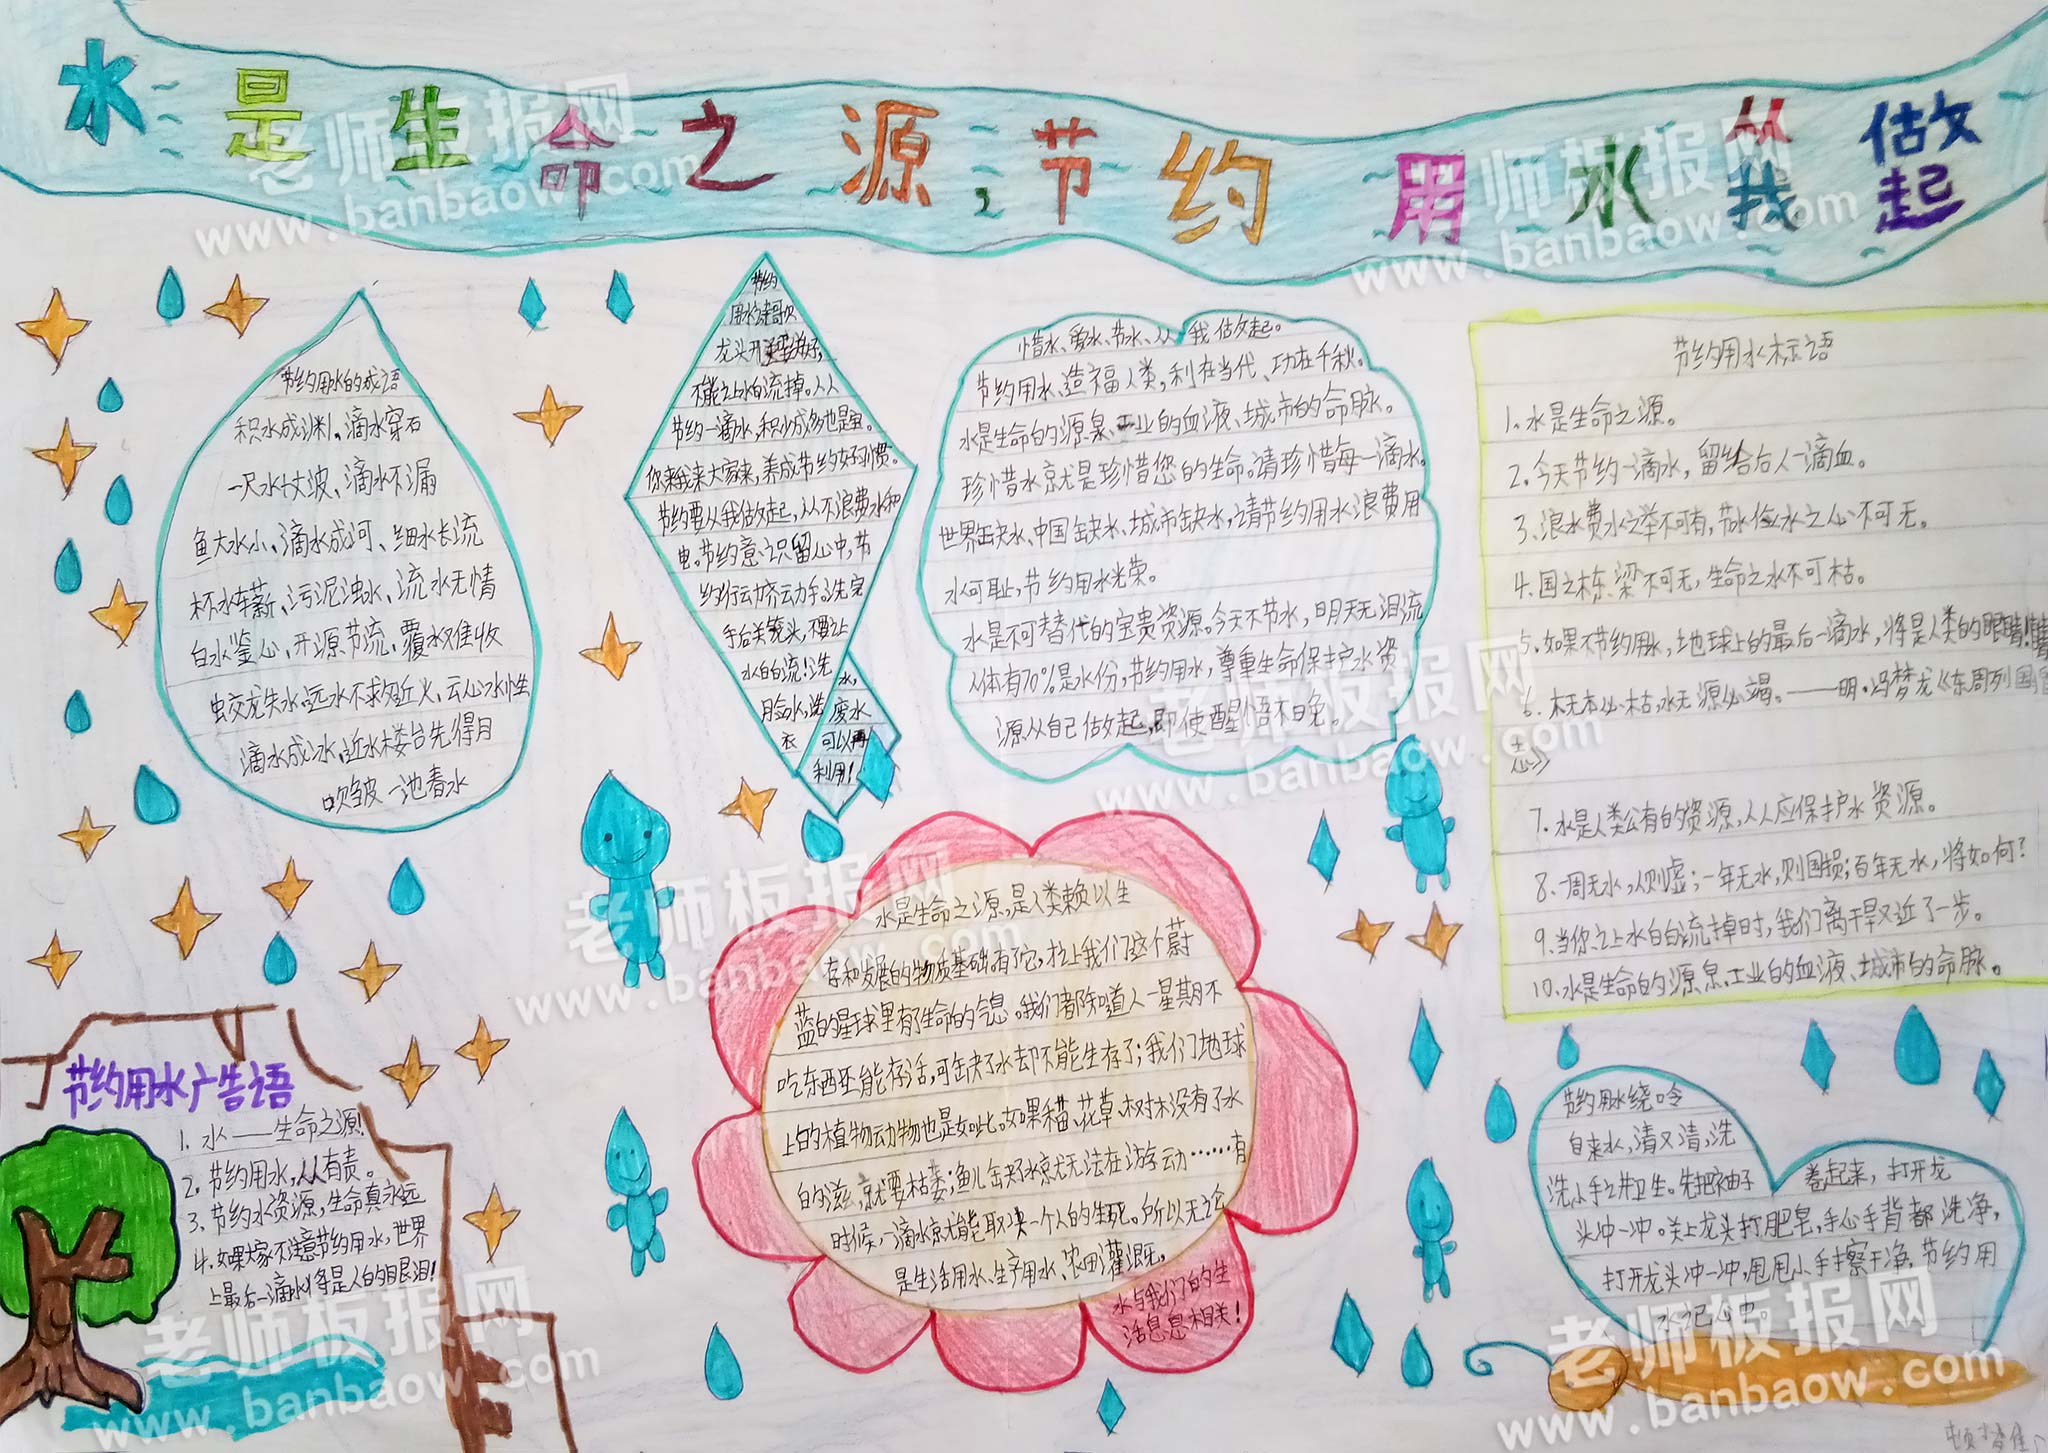 水是生命之源,节约用水从我做起
节约用水的成语
积水成渊、滴水穿石
一尺水丈波、滴水不漏
鱼大水小、滴水成河、细水长流
杯水车薪、污泥浊水、流水无情
白水鉴心、开源节流、覆水难收
蛟龙失水、远水不救近火、云心水性
滴水成冰、近水楼台先得月
吹皱一池春水
节约
用水绿歌
不能让水白流掉。人人
节约一滴水,积少成多也是宝。
你来我来大家来,养成节约好习惯。
节约要从我做起,从不浪费水和
电。节约意识留心中,节
约行动挤云动手,洗完
手后关笼头,不要让
水白白流!洗
脸水,洗
衣
水,
废水
可以再
利用!
惜水、爱水、节水、从我做起。
节约用水、造福人类,利在当代、功在千秋。
水是生命的源泉、工业的血液、城市的命脉。
珍惜水就是珍惜您的生命。请珍惜每一滴水。
世界缺水、中国缺水、城市缺水,请节约用水浪费用
水可耻,节约用水光荣。
水是不可替代的宝贵资源。今天不节水,明天无泪流
人体有70%是水份,节约用水,尊重生命保护水资
源从自己做起,即使醒悟不晚。
节约用水标语
1、水是生命之源。
2、今天节约一滴水,留给后人一滴血。
3、浪水费水之举不可有,节水俭水之心不可无。
4、国之栋梁不可无,生命之水不可枯。
5、如果不节约用水,地球上的最后一滴水,将是人类的眼睛!
6、木无本必枯,水无源必竭。——明·冯梦龙《东周列国
志》
7、水是人类公有的资源,人人应保护水资源。
8、一周无水,人则虚;一年无水,则国损;百年无水,将如何?
9、当你让水白白流掉时,我们离干旱又近了一步。
10、水是生命的源泉、工业的血液、城市的命脉。
水是生命之源,是人类赖以生
存和发展的物质基础。有了它,才让我们这个蔚
蓝的星球里有了生命的气息。我们都知道人一星期不
吃东西还能存活,可缺了水却不能生存了;我们地球
上的植物动物也是如此。如果禾苗、花草、树木没有了水
的滋,就要枯萎;鱼儿缺水就无法在游动……有
时候,一滴水就能取决一个人的生死。所以无论
是生活用水、生产用水、农田灌溉。
水与我们的生
活息息相关!
节约用水广告语
1、水——生命之源!
2、节约用水,人人有责。
3、节约水资源,生命真永远
4、如果大家不注意节约用水,世界
上最后一滴水将是人的眼泪!
节约用水绕口令
自来水,清又清,洗
洗小手讲卫生。先把袖子卷起来,打开龙
头冲一冲。关上龙头打肥皂,手心手背都洗净,
打开龙头冲一冲,甩甩小手擦干净,节约用
水记心中。
老师板报网
www.banbaow.com
老师板报网
www.banbaow.com
老师板报网
www.banbaow.com
老师板报网
www.banbaow.com
老师板报网
www.banbaow.com
老师板报网
www.banbaow.com